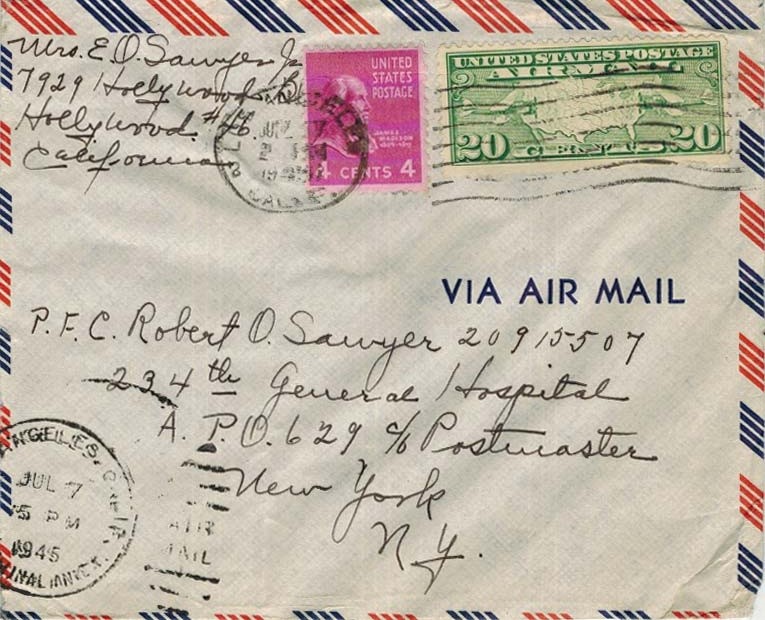 Mrs. E. O. Sawyer Jr
7929 Hollywood Bl
Hollywood #46
California
UNITED
STATES
POSTAGE
JAMES
MADISON
4 CENTS 4
UNITED STATES POSTAGE
AIR MAIL
20 CENTS 20
JUL 7
CALIF.
VIA AIR MAIL
P.F.C. Robert O. Sawyer 20915507
234th General Hospital
A.P.O. 629 c/o Postmaster
New York
N.Y.
ANGELES, CALIF.
JUL 7
5 PM
1945
AIR
MAIL